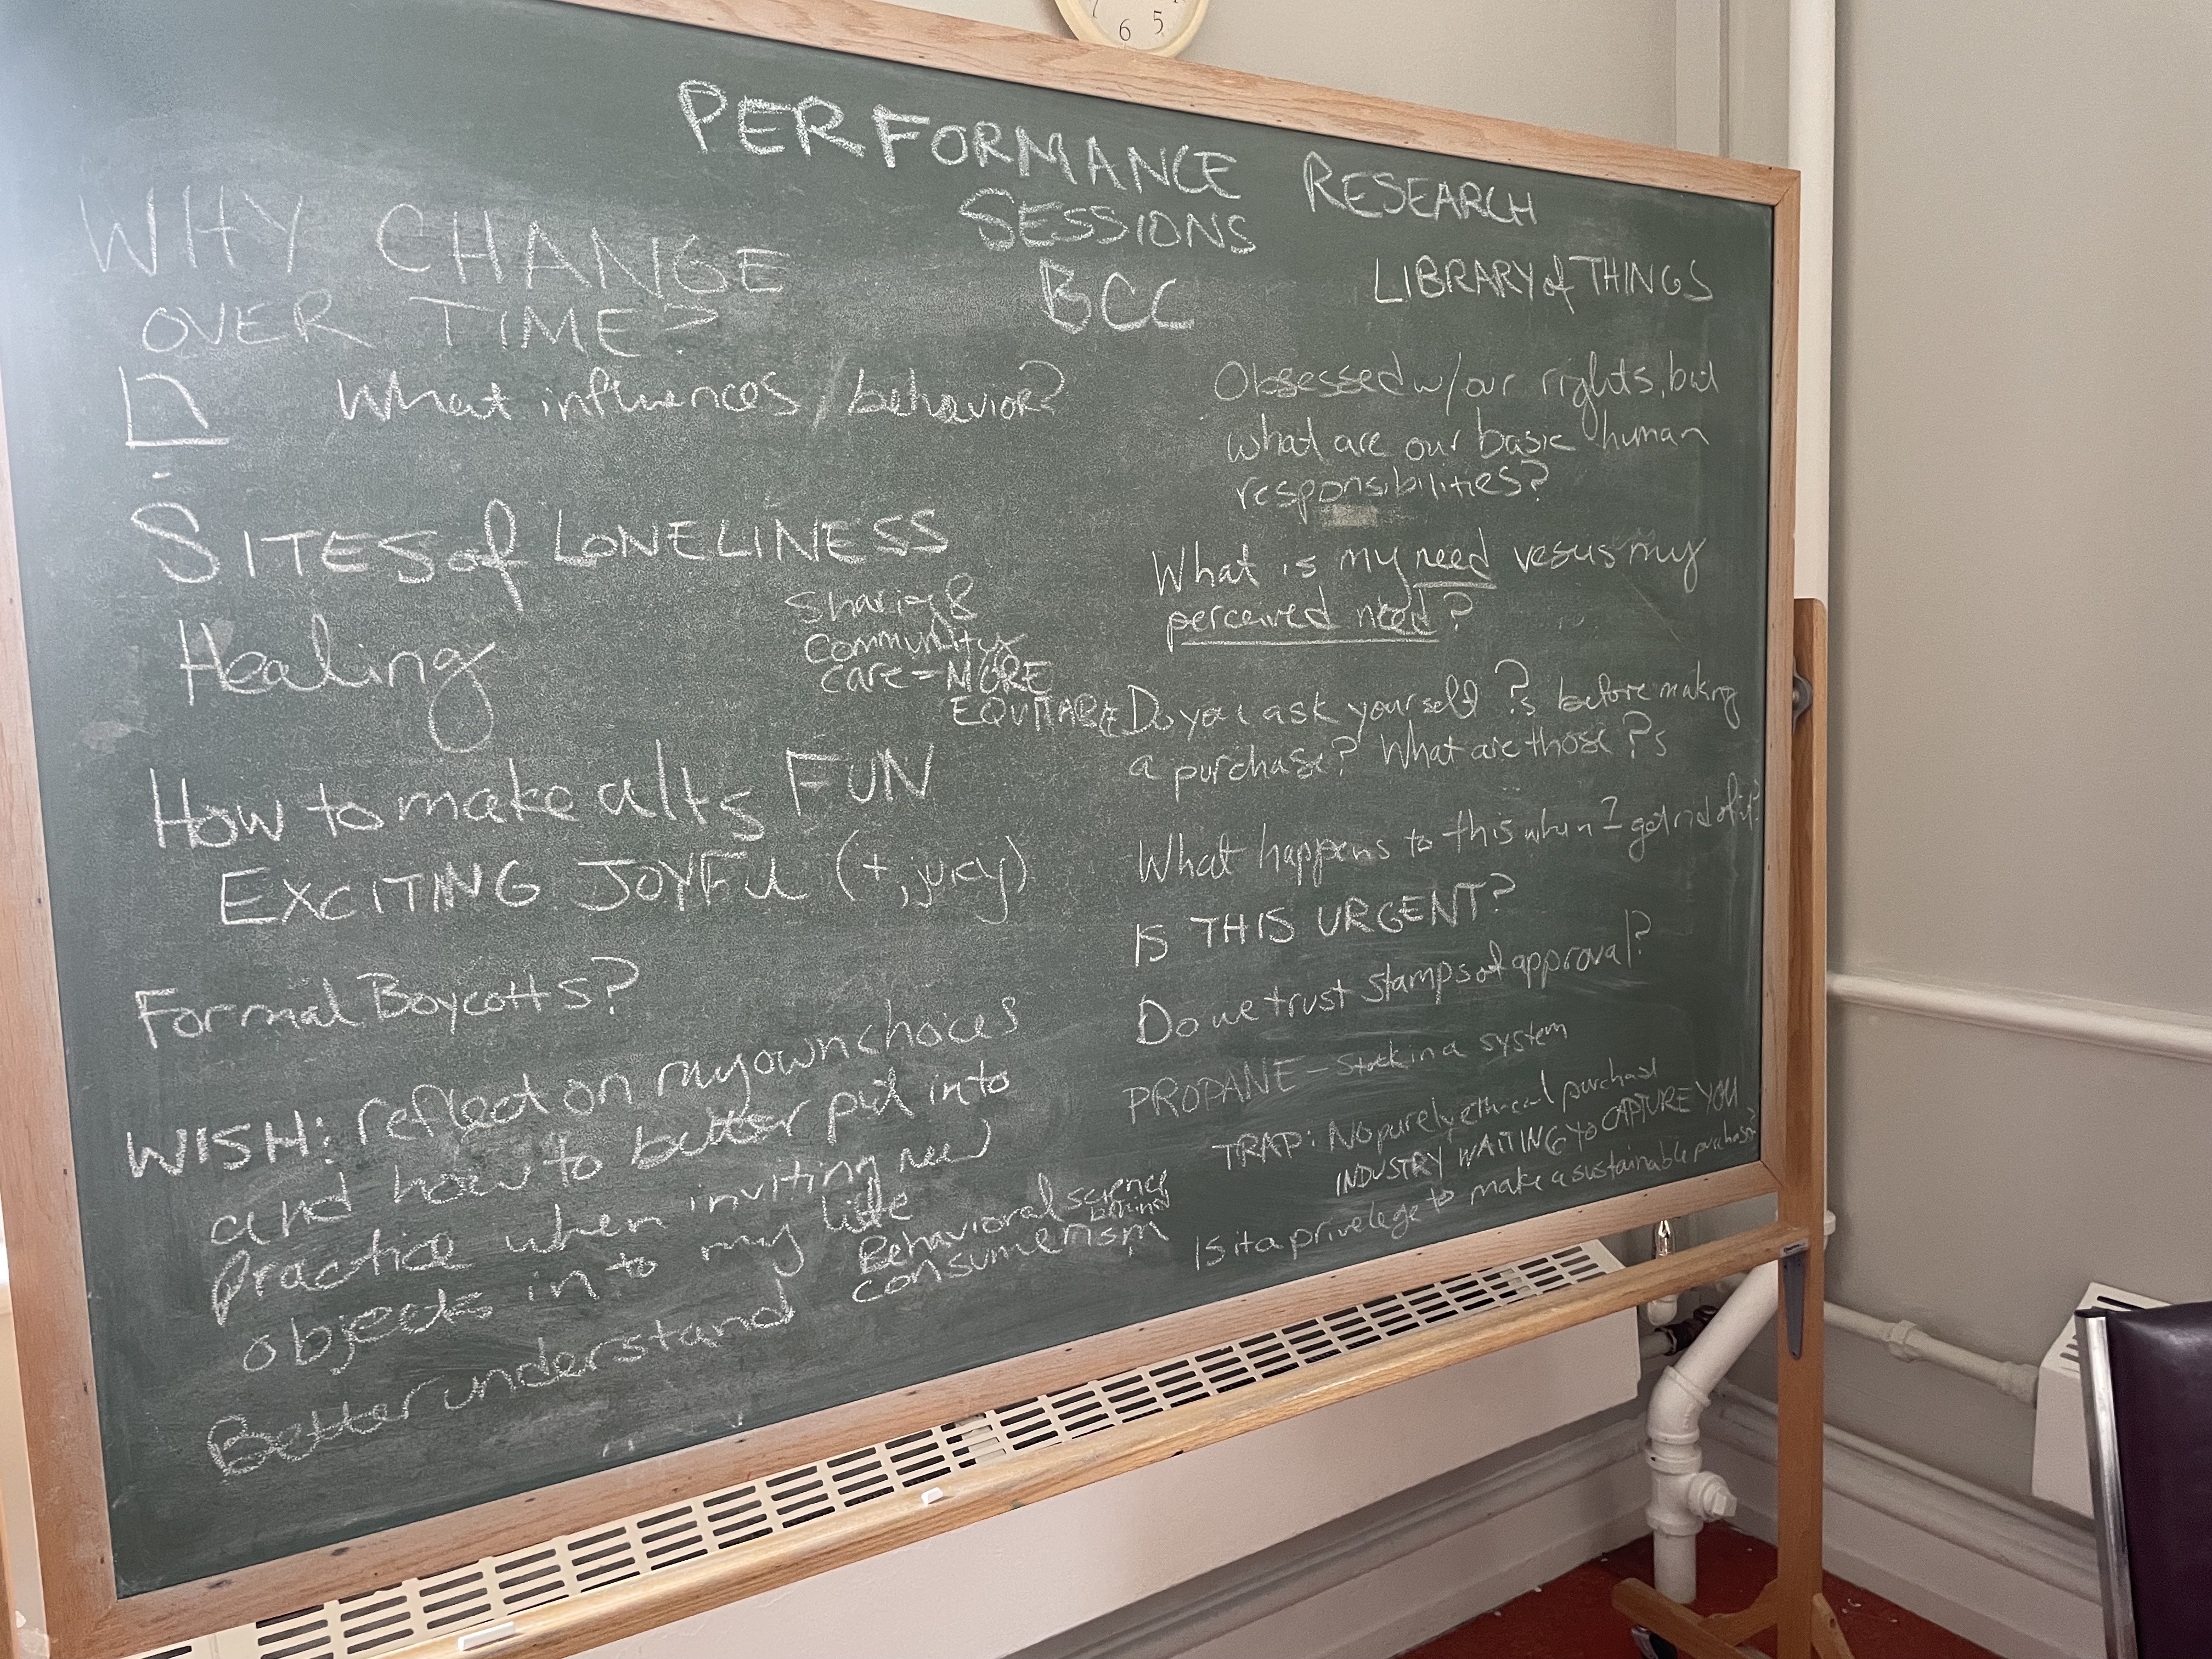 PERFORMANCE RESEARCH
SESSIONS
BCC
WHY CHANGE
OVER TIME?
What influences / behavior?
SITES of LONELINESS
Healing
Sharing &
Community
care = MORE
EQUITABLE
How to make alts FUN
EXCITING JOYFUL (+, juicy)
Formal Boycotts?
WISH: reflect on my own choices
and how to better put into
practice when inviting new
objects in to my life
Better understand Behavioral science
behind
consumerism
LIBRARY of THINGS
Obsessed w/ our rights, but
what are our basic human
responsibilities?
What is my need vesus my
perceived need?
Do you ask yourself ?s before making
a purchase? What are those ?s
What happens to this when I get rid of it?
IS THIS URGENT?
Do we trust stamps of approval?
PROPANE - Stuck in a system
TRAP: No purely ethical purchase
INDUSTRY WAITING to CAPTURE YOU
Is it a privelege to make a sustainable purchase?
6 5